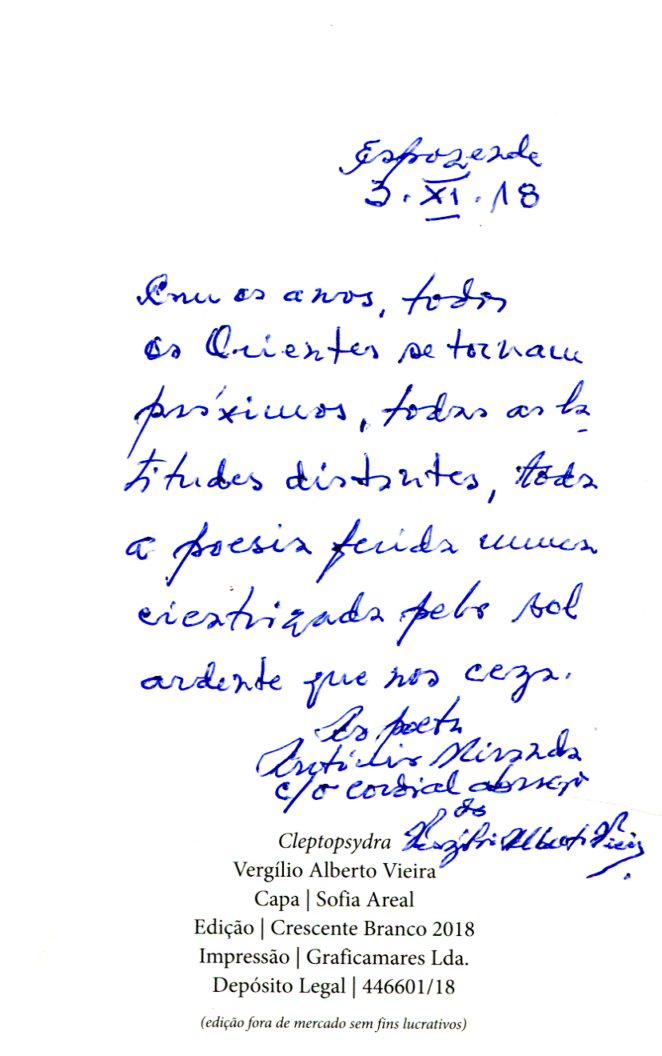 Espozende
3.XI.18
Com os anos, todos
os Orientes se tornam
próximos, todas as la
titudes distantes, toda
a poesia ferida nunca
cicatrizada pelo sol
ardente que nos cega.
Ao poeta
António Miranda
c/o cordial abraço
do
Vergílio Alberto Vieira
Cleptopsydra
Vergílio Alberto Vieira
Capa | Sofia Areal
Edição | Crescente Branco 2018
Impressão | Graficamares Lda.
Depósito Legal | 446601/18
(edição fora de mercado sem fins lucrativos)